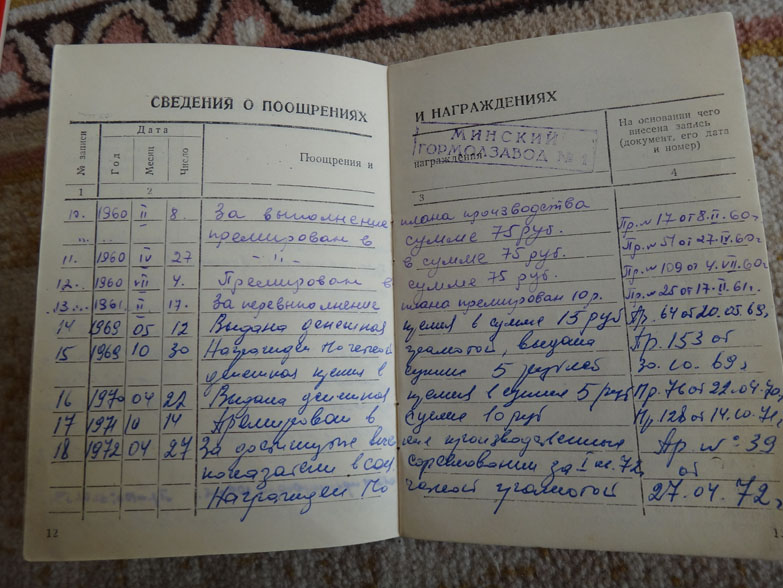 СВЕДЕНИЯ О ПООЩРЕНИЯХ И НАГРАЖДЕНИЯХ
№ записи
Дата
Год
Месяц
Число
Поощрения и награждения
На основании чего внесена запись (документ, его дата и номер)
МИНСКИЙ
ГОРМОЛЗАВОД № 1
1 2 3 4
10. 1960 II 8. За выполнение плана производства
премирован в сумме 75 руб. Пр. № 17 от 8.II.60г.
11. 1960 IV 27 - II - в сумме 75 руб. Пр. № 51 от 27.IV.60г
12. 1960 VII 4. Премирован в сумме 75 руб. Пр. № 109 от 4.VII.60г
13. 1961 II 17. За перевыполнение плана премирован 10 р. Пр. № 25 от 17.II.61г.
14 1969 05 12 Выдана денежная премия в сумме 15 руб Пр. 64 от 20.05.69г
15 1969 10 30 Награжден Почетной грамотой, выдана Пр. 153 от
денежная премия в сумме 5 рублей 30.10.69г
16 1970 04 22 Выдана денежная премия в сумме 5 руб Пр. 76 от 22.04.70г
17 1971 10 14 Премирован в сумме 10 руб Пр. 128 от 14.10.71г
18 1972 04 27 За достигнутые производственные Пр. № 39
показатели в соц. соревновании за I кв. 72г. от
Награжден Почетной грамотой 27.04.72г
12